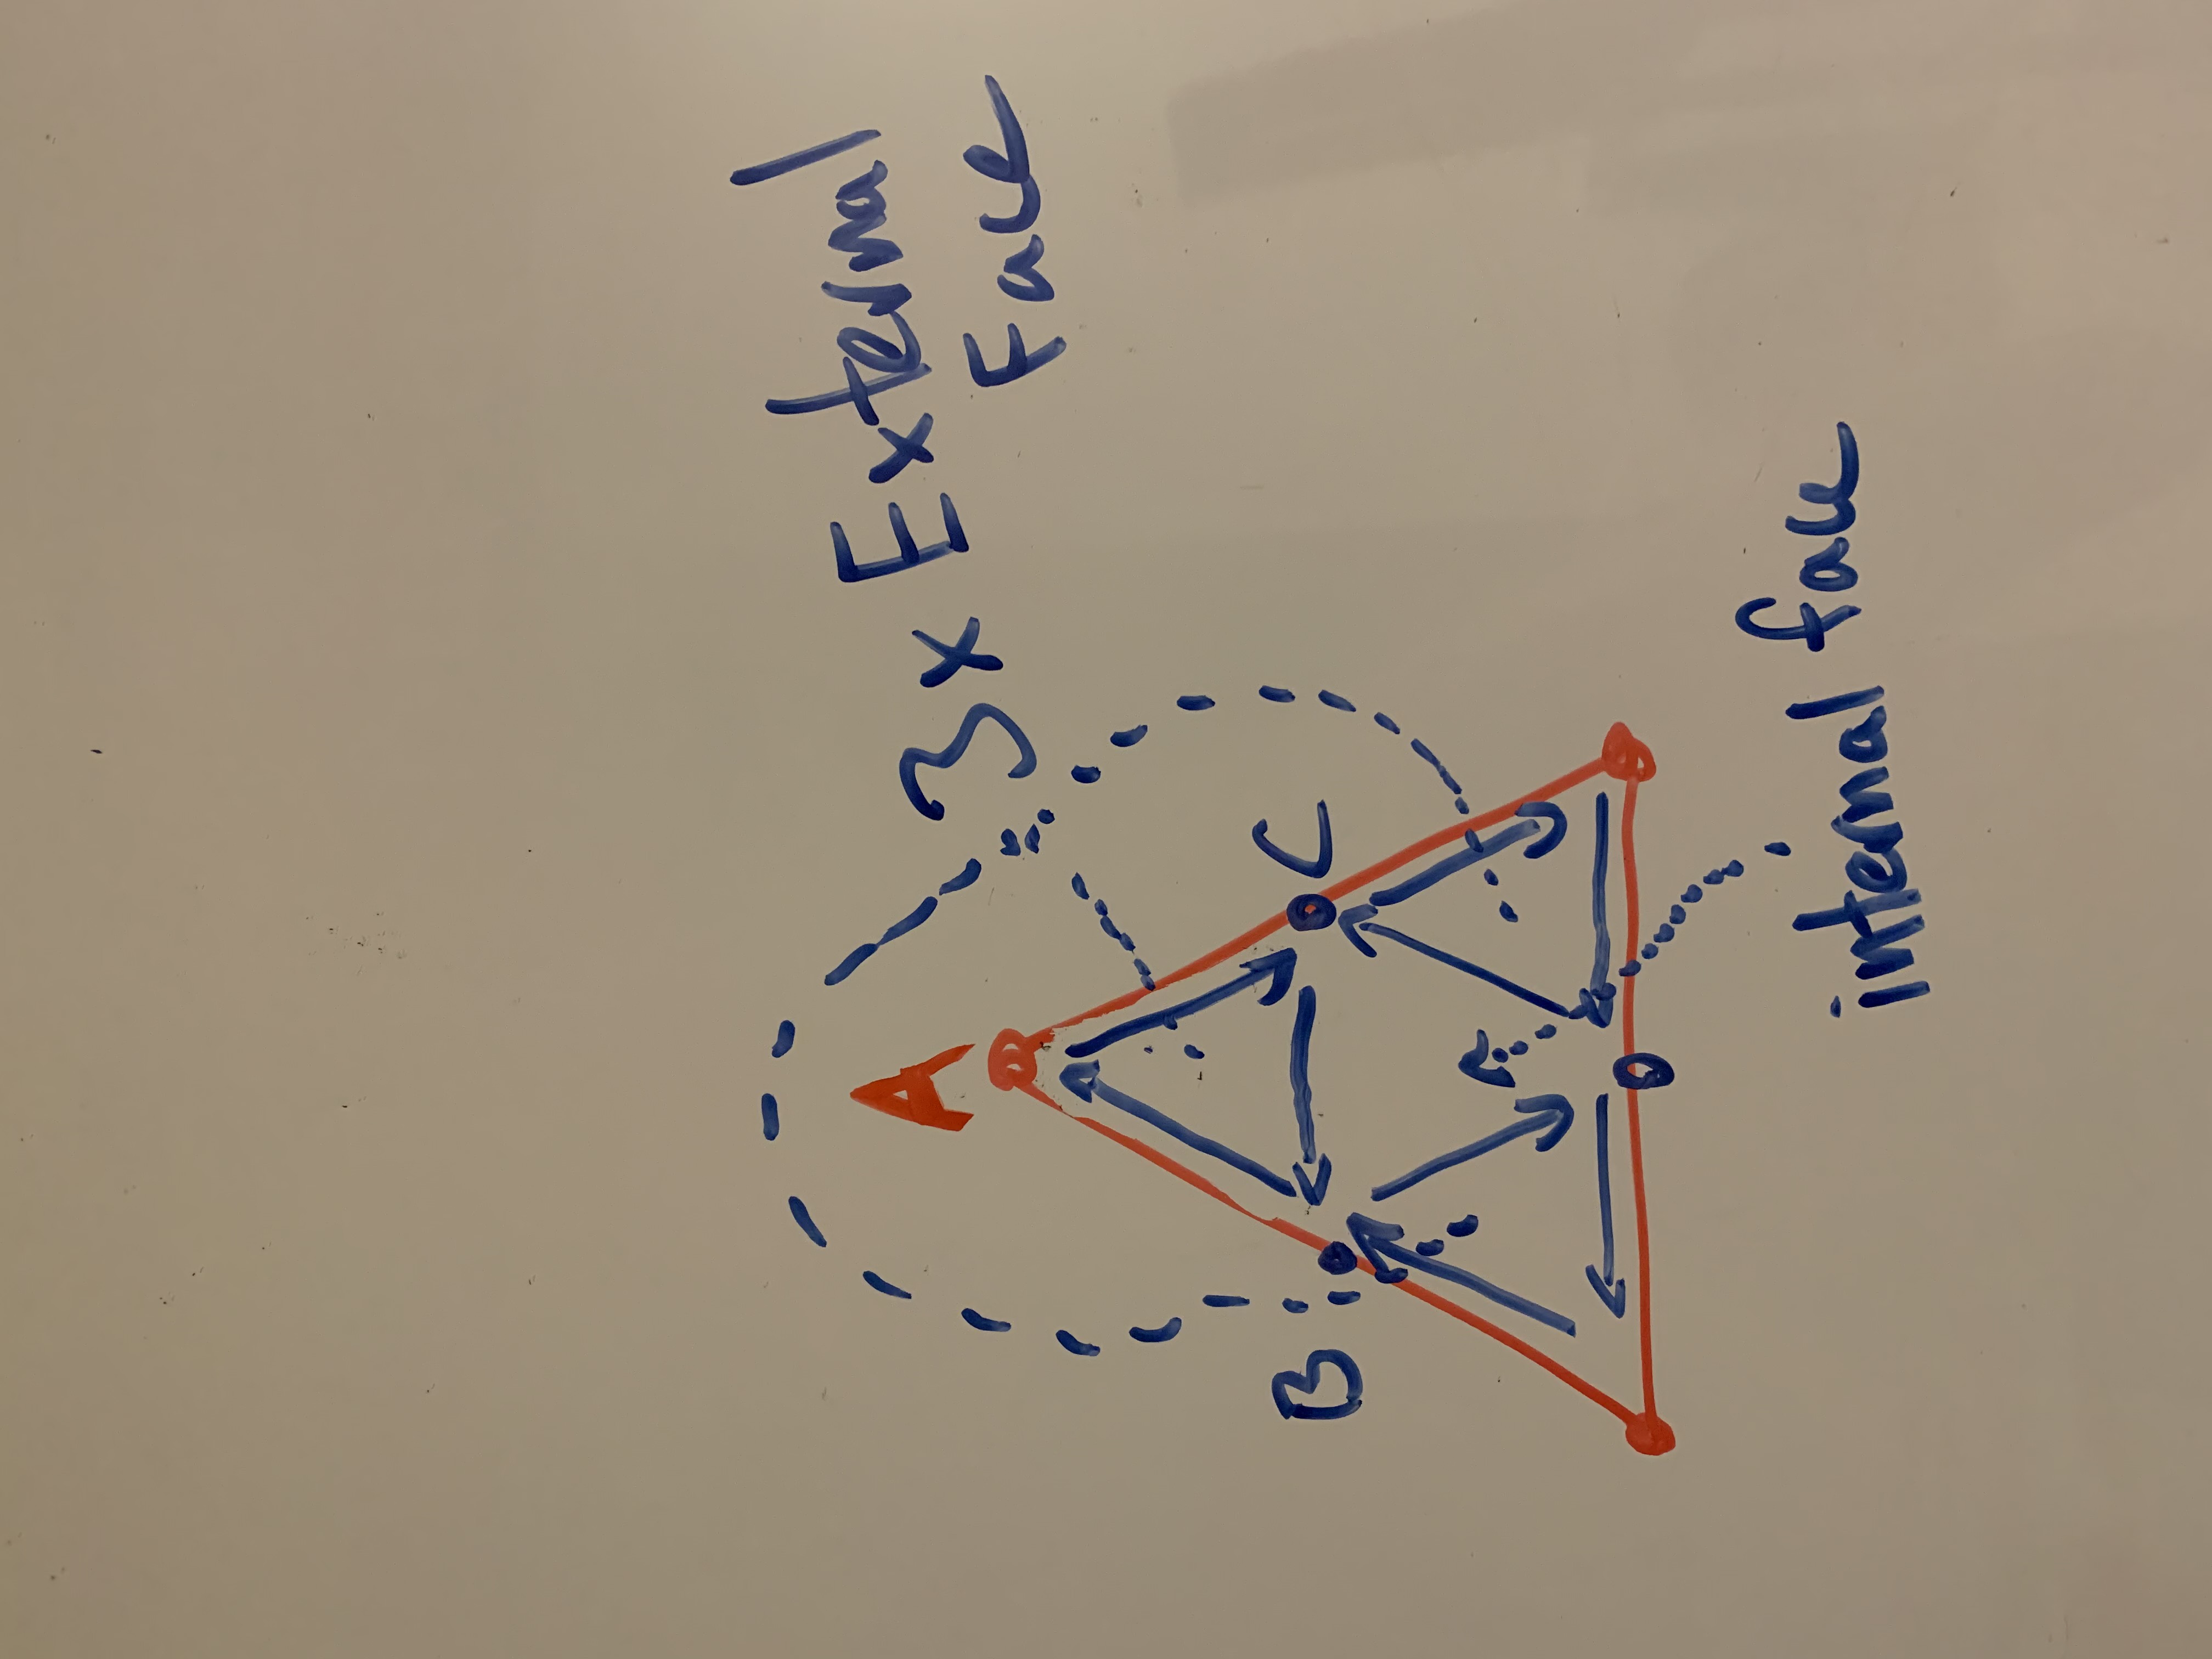 A
3x External
Face
B
C
internal face